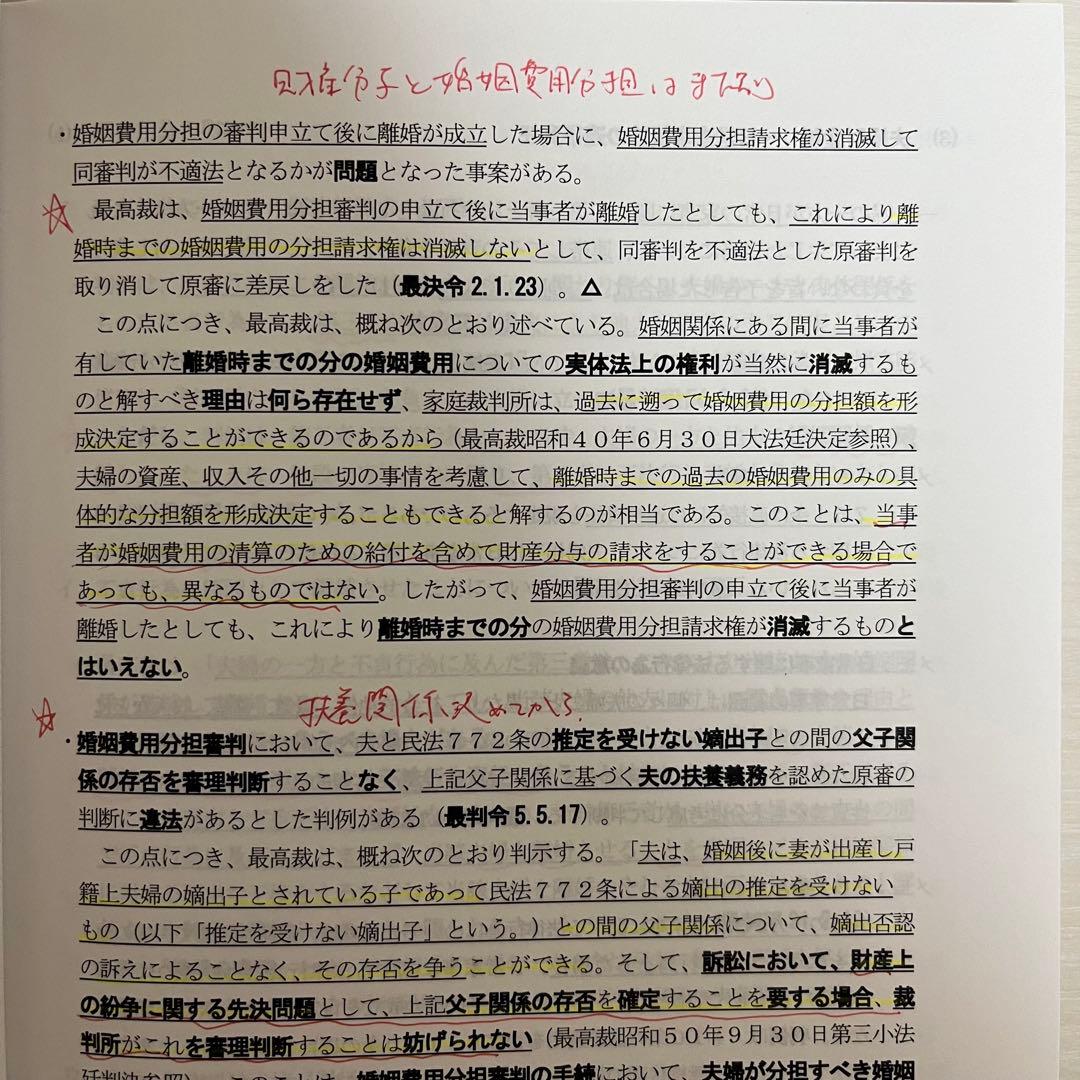 財産分与と婚姻費用分担はまた別
・婚姻費用分担の審判申立て後に離婚が成立した場合に、婚姻費用分担請求権が消滅して
同審判が不適法となるかが問題となった事案がある。
最高裁は、婚姻費用分担審判の申立て後に当事者が離婚したとしても、これにより離
婚時までの婚姻費用の分担請求権は消滅しないとして、同審判を不適法とした原審判を
取り消して原審に差戻しをした（最決令2.1.23）。△
この点につき、最高裁は、概ね次のとおり述べている。婚姻関係にある間に当事者が
有していた離婚時までの分の婚姻費用についての実体法上の権利が当然に消滅するも
のと解すべき理由は何ら存在せず、家庭裁判所は、過去に遡って婚姻費用の分担額を形
成決定することができるのであるから（最高裁昭和４０年６月３０日大法廷決定参照）、
夫婦の資産、収入その他一切の事情を考慮して、離婚時までの過去の婚姻費用のみの具
体的な分担額を形成決定することもできると解するのが相当である。このことは、当事
者が婚姻費用の清算のための給付を含めて財産分与の請求をすることができる場合で
あっても、異なるものではない。したがって、婚姻費用分担審判の申立て後に当事者が
離婚したとしても、これにより離婚時までの分の婚姻費用分担請求権が消滅するものと
はいえない。
扶養関係決めてから。
・婚姻費用分担審判において、夫と民法７７２条の推定を受けない嫡出子との間の父子関
係の存否を審理判断することなく、上記父子関係に基づく夫の扶養義務を認めた原審の
判断に違法があるとした判例がある（最判令5.5.17）。
この点につき、最高裁は、概ね次のとおり判示する。「夫は、婚姻後に妻が出産し戸
籍上夫婦の嫡出子とされている子であって民法７７２条による嫡出の推定を受けない
もの（以下「推定を受けない嫡出子」という。）との間の父子関係について、嫡出否認
の訴えによることなく、その存否を争うことができる。そして、訴訟において、財産上
の紛争に関する先決問題として、上記父子関係の存否を確定することを要する場合、裁
判所がこれを審理判断することは妨げられない（最高裁昭和５０年９月３０日第三小法
廷判決参照）。このことは、婚姻費用分担審判の手続において、夫婦が分担すべき婚姻